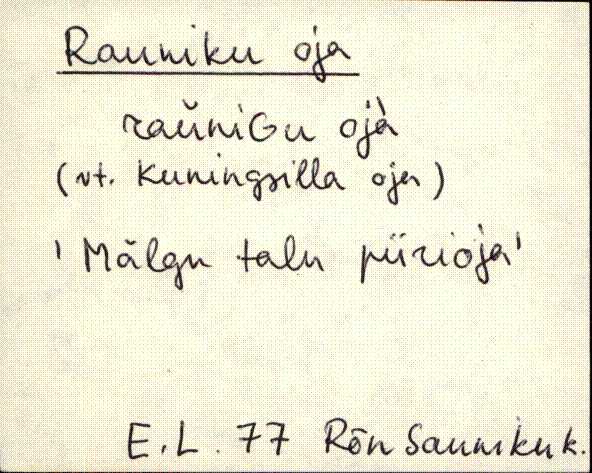 Rauniku oja
raŭniGu ojà
(vt. Kuningsilla oja)
'Mälgu talu piirioja'
E.L. 77 Rõn Sauniku k.